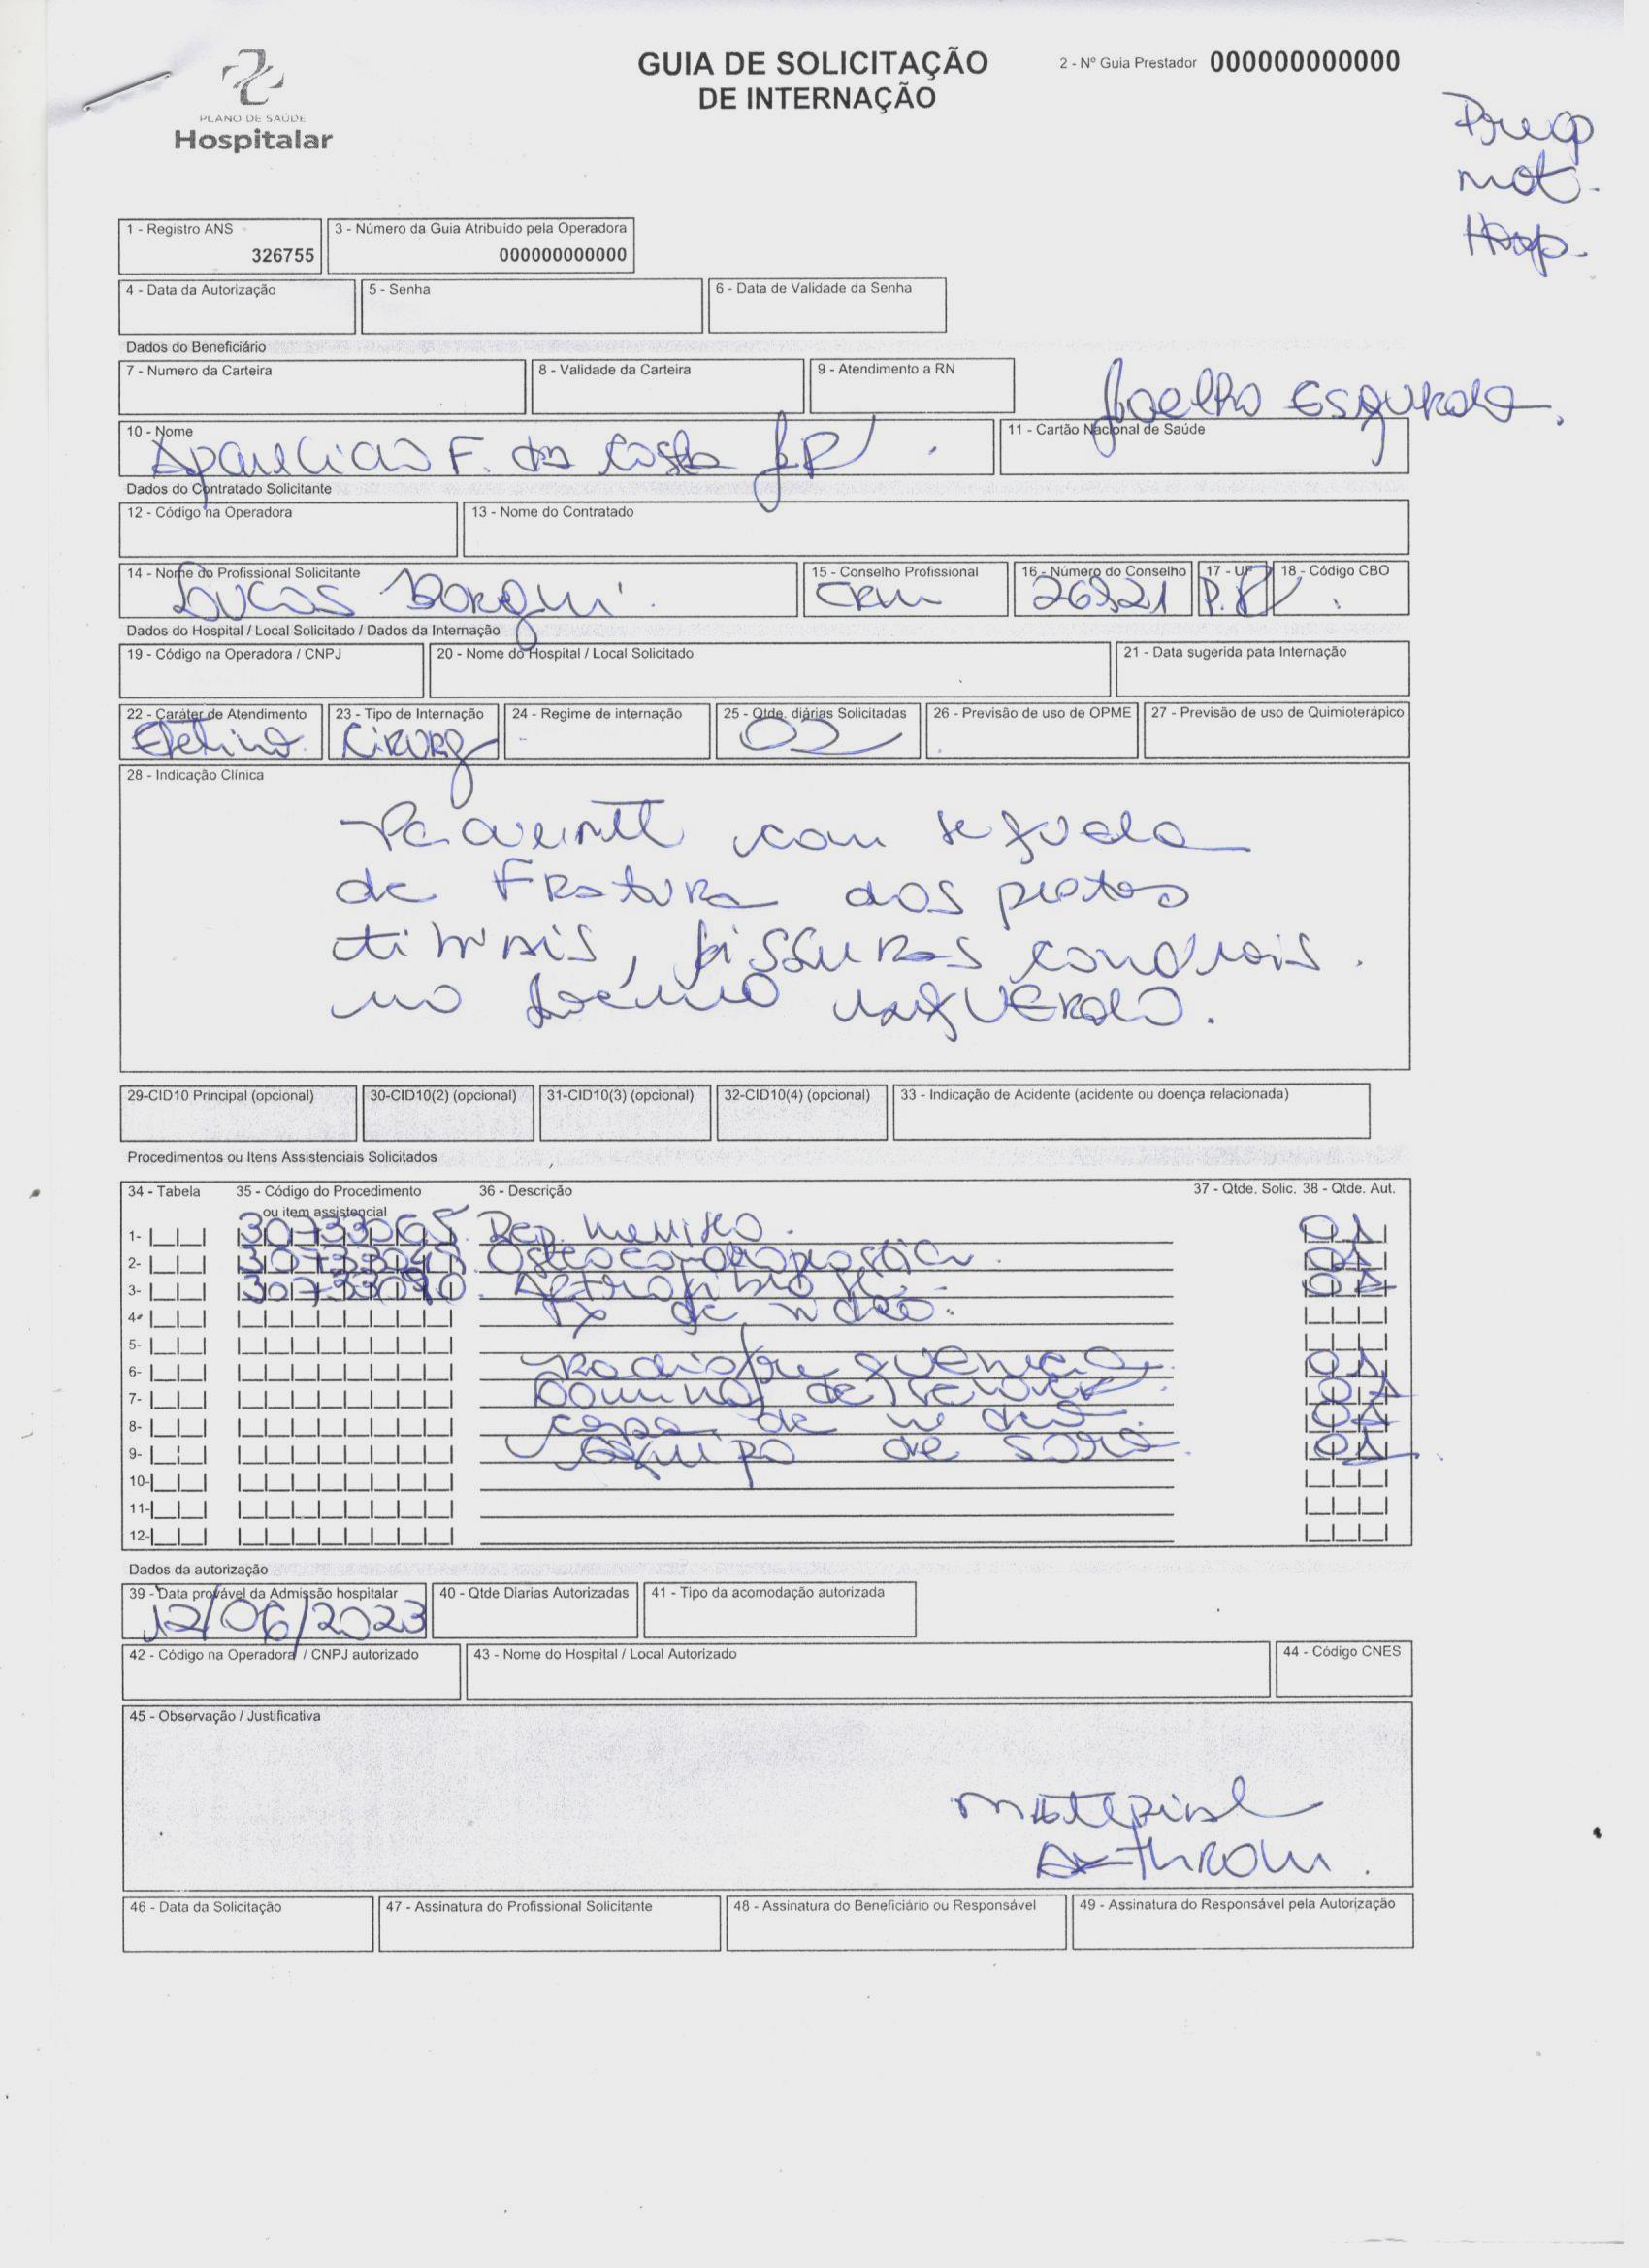 GUIA DE SOLICITAÇÃO
DE INTERNAÇÃO
2 - Nº Guia Prestador 000000000000
PLANO DE SAÚDE
Hospitalar
mat.
Hosp.
1 - Registro ANS
326755
3 - Número da Guia Atribuído pela Operadora
000000000000
4 - Data da Autorização
5 - Senha
6 - Data de Validade da Senha
Dados do Beneficiário
7 - Numero da Carteira
8 - Validade da Carteira
9 - Atendimento a RN
Joelho Esquerdo.
10 - Nome
Aparecido F. da Costa
11 - Cartão Nacional de Saúde
Dados do Contratado Solicitante
12 - Código na Operadora
13 - Nome do Contratado
14 - Nome do Profissional Solicitante
Lucas Borgui
15 - Conselho Profissional
CRM
16 - Número do Conselho
26921
17 - UF
PR
18 - Código CBO
Dados do Hospital / Local Solicitado / Dados da Internação
19 - Código na Operadora / CNPJ
20 - Nome do Hospital / Local Solicitado
21 - Data sugerida pata Internação
22 - Caráter de Atendimento
Eletivo
23 - Tipo de Internação
Cirurg
24 - Regime de internação
25 - Qtde. diárias Solicitadas
02
26 - Previsão de uso de OPME
27 - Previsão de uso de Quimioterápico
28 - Indicação Clínica
Paciente com sequela
de Fratura dos pratos
tibiais, fissuras condrais
no joelho esquerdo.
29-CID10 Principal (opcional)
30-CID10(2) (opcional)
31-CID10(3) (opcional)
32-CID10(4) (opcional)
33 - Indicação de Acidente (acidente ou doença relacionada)
Procedimentos ou Itens Assistenciais Solicitados
34 - Tabela
35 - Código do Procedimento
ou item assistencial
36 - Descrição
37 - Qtde. Solic. 38 - Qtde. Aut.
1- 30733065 Rep. menisco. 01
2- Osteocondroplastia. 01
3- 01
4- Tx de video.
5-
6- Radiofrequencia. 01
7- 01
8- capa de video. 01
9- Equipo de soro. 01
10-
11-
12-
Dados da autorização
39 - Data provável da Admissão hospitalar
12/06/2023
40 - Qtde Diarias Autorizadas
41 - Tipo da acomodação autorizada
42 - Código na Operadora / CNPJ autorizado
43 - Nome do Hospital / Local Autorizado
44 - Código CNES
45 - Observação / Justificativa
Material
46 - Data da Solicitação
47 - Assinatura do Profissional Solicitante
48 - Assinatura do Beneficiário ou Responsável
49 - Assinatura do Responsável pela Autorização